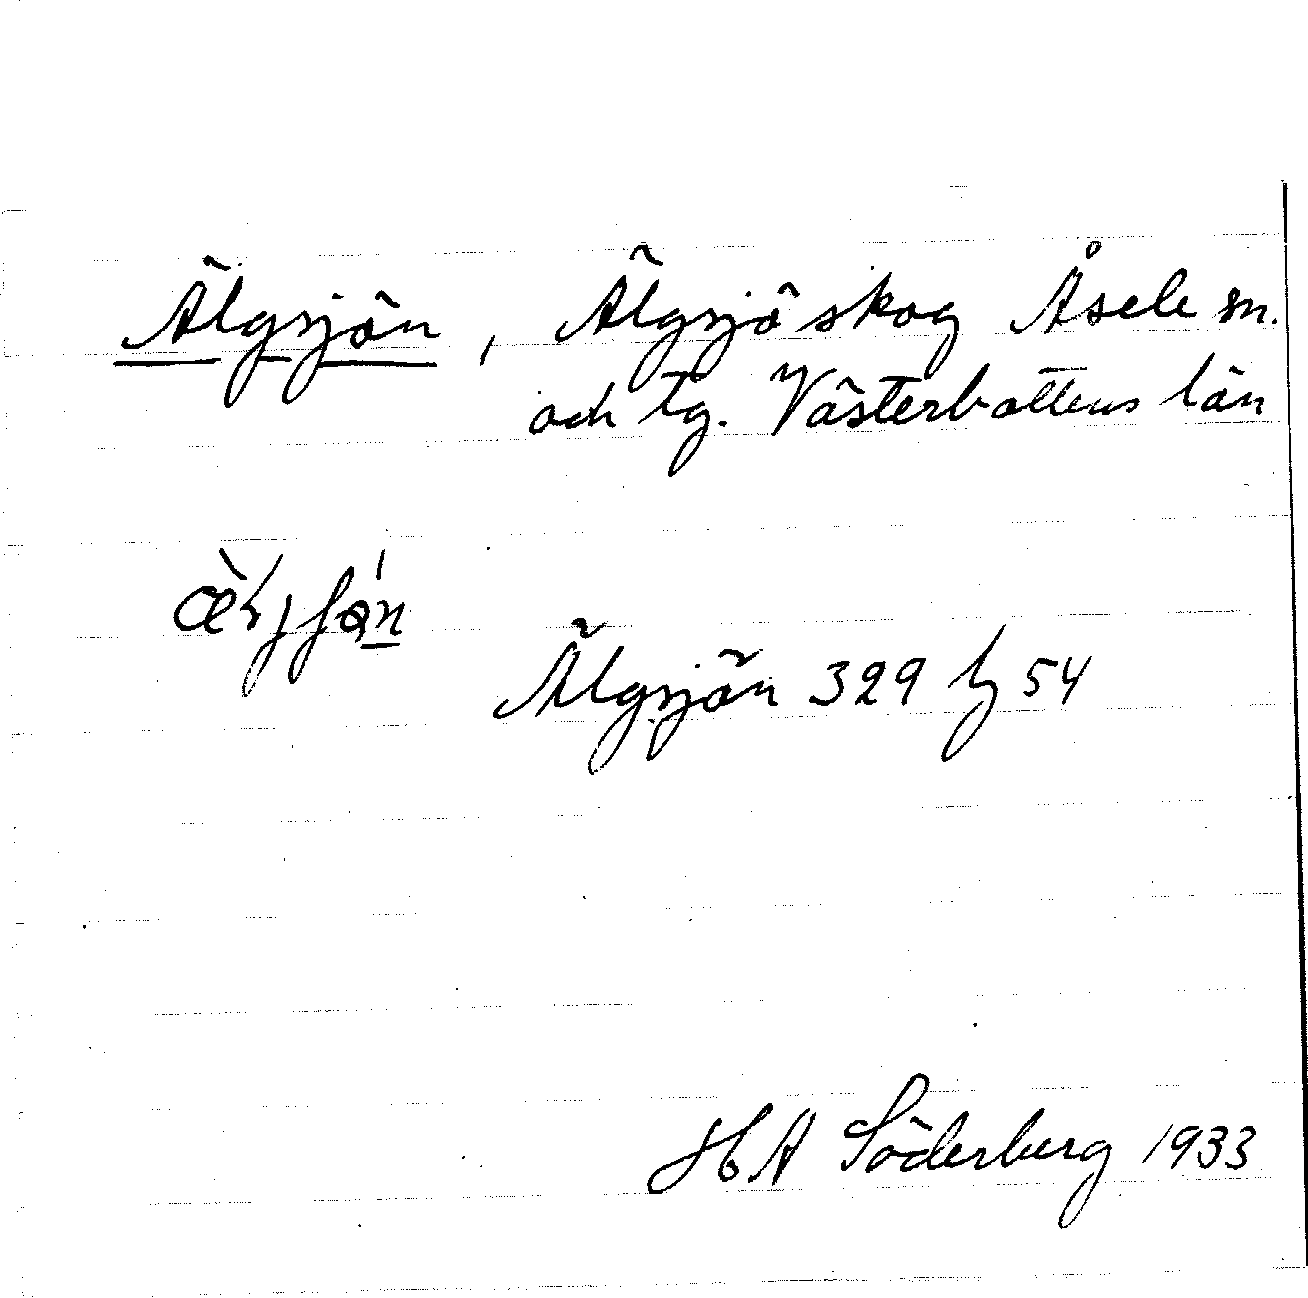 Älgsjön, Älgsjöskog Åsele sn.
och tg. Västerbottens län
Älgsjön 329 54
HA Söderberg 1933